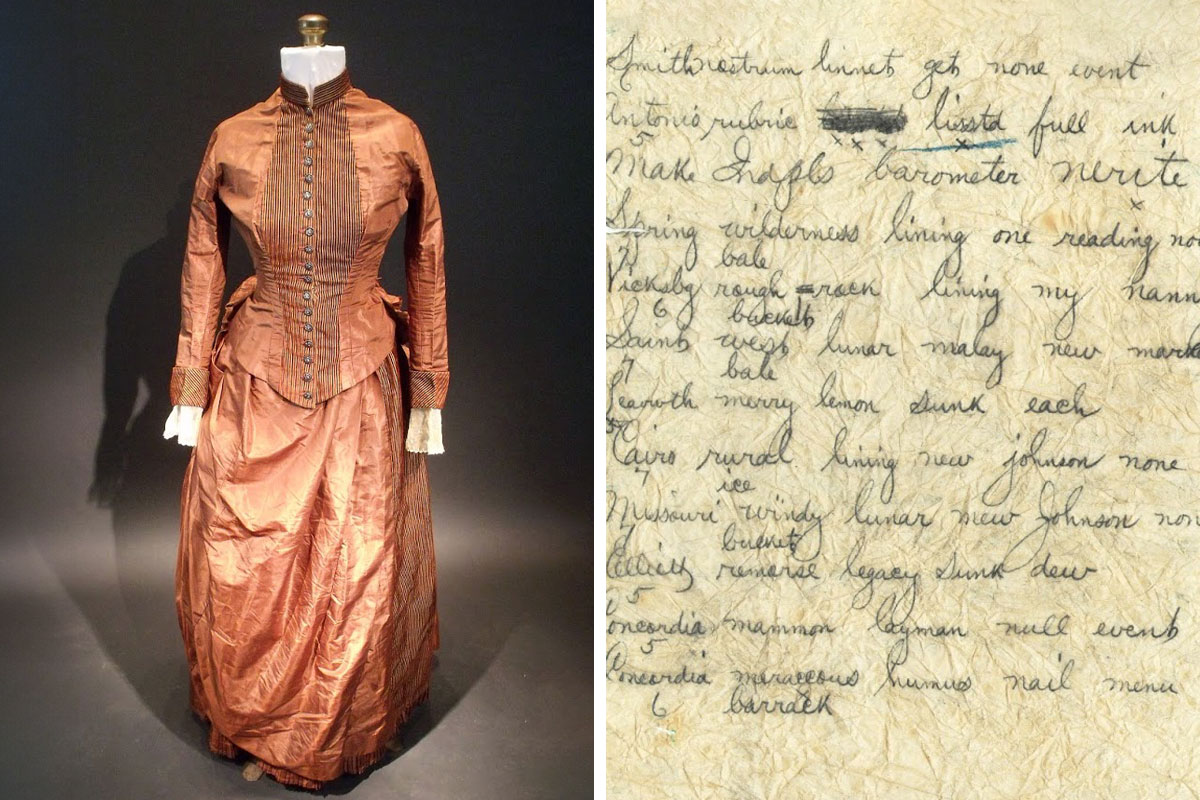 Smith nostrum linnet get none event
Antonio rubric lissta full ink
5
Make Indpls barometer nerite
Spring wilderness lining one reading
7 bale
Vicksbg rough rack lining my nann
6 bucket
Saint west lunar malay new mark
7 bale
merry lemon sunk each
5
Cairo rural lining new johnson none
7 ice
Missouri windy lunar mew Johnson non
7 bucket
Elliott remorse legacy sunk dew
5
Concordia mammon layman null event
5
Concordia meraccous humus nail menu
6 barrack